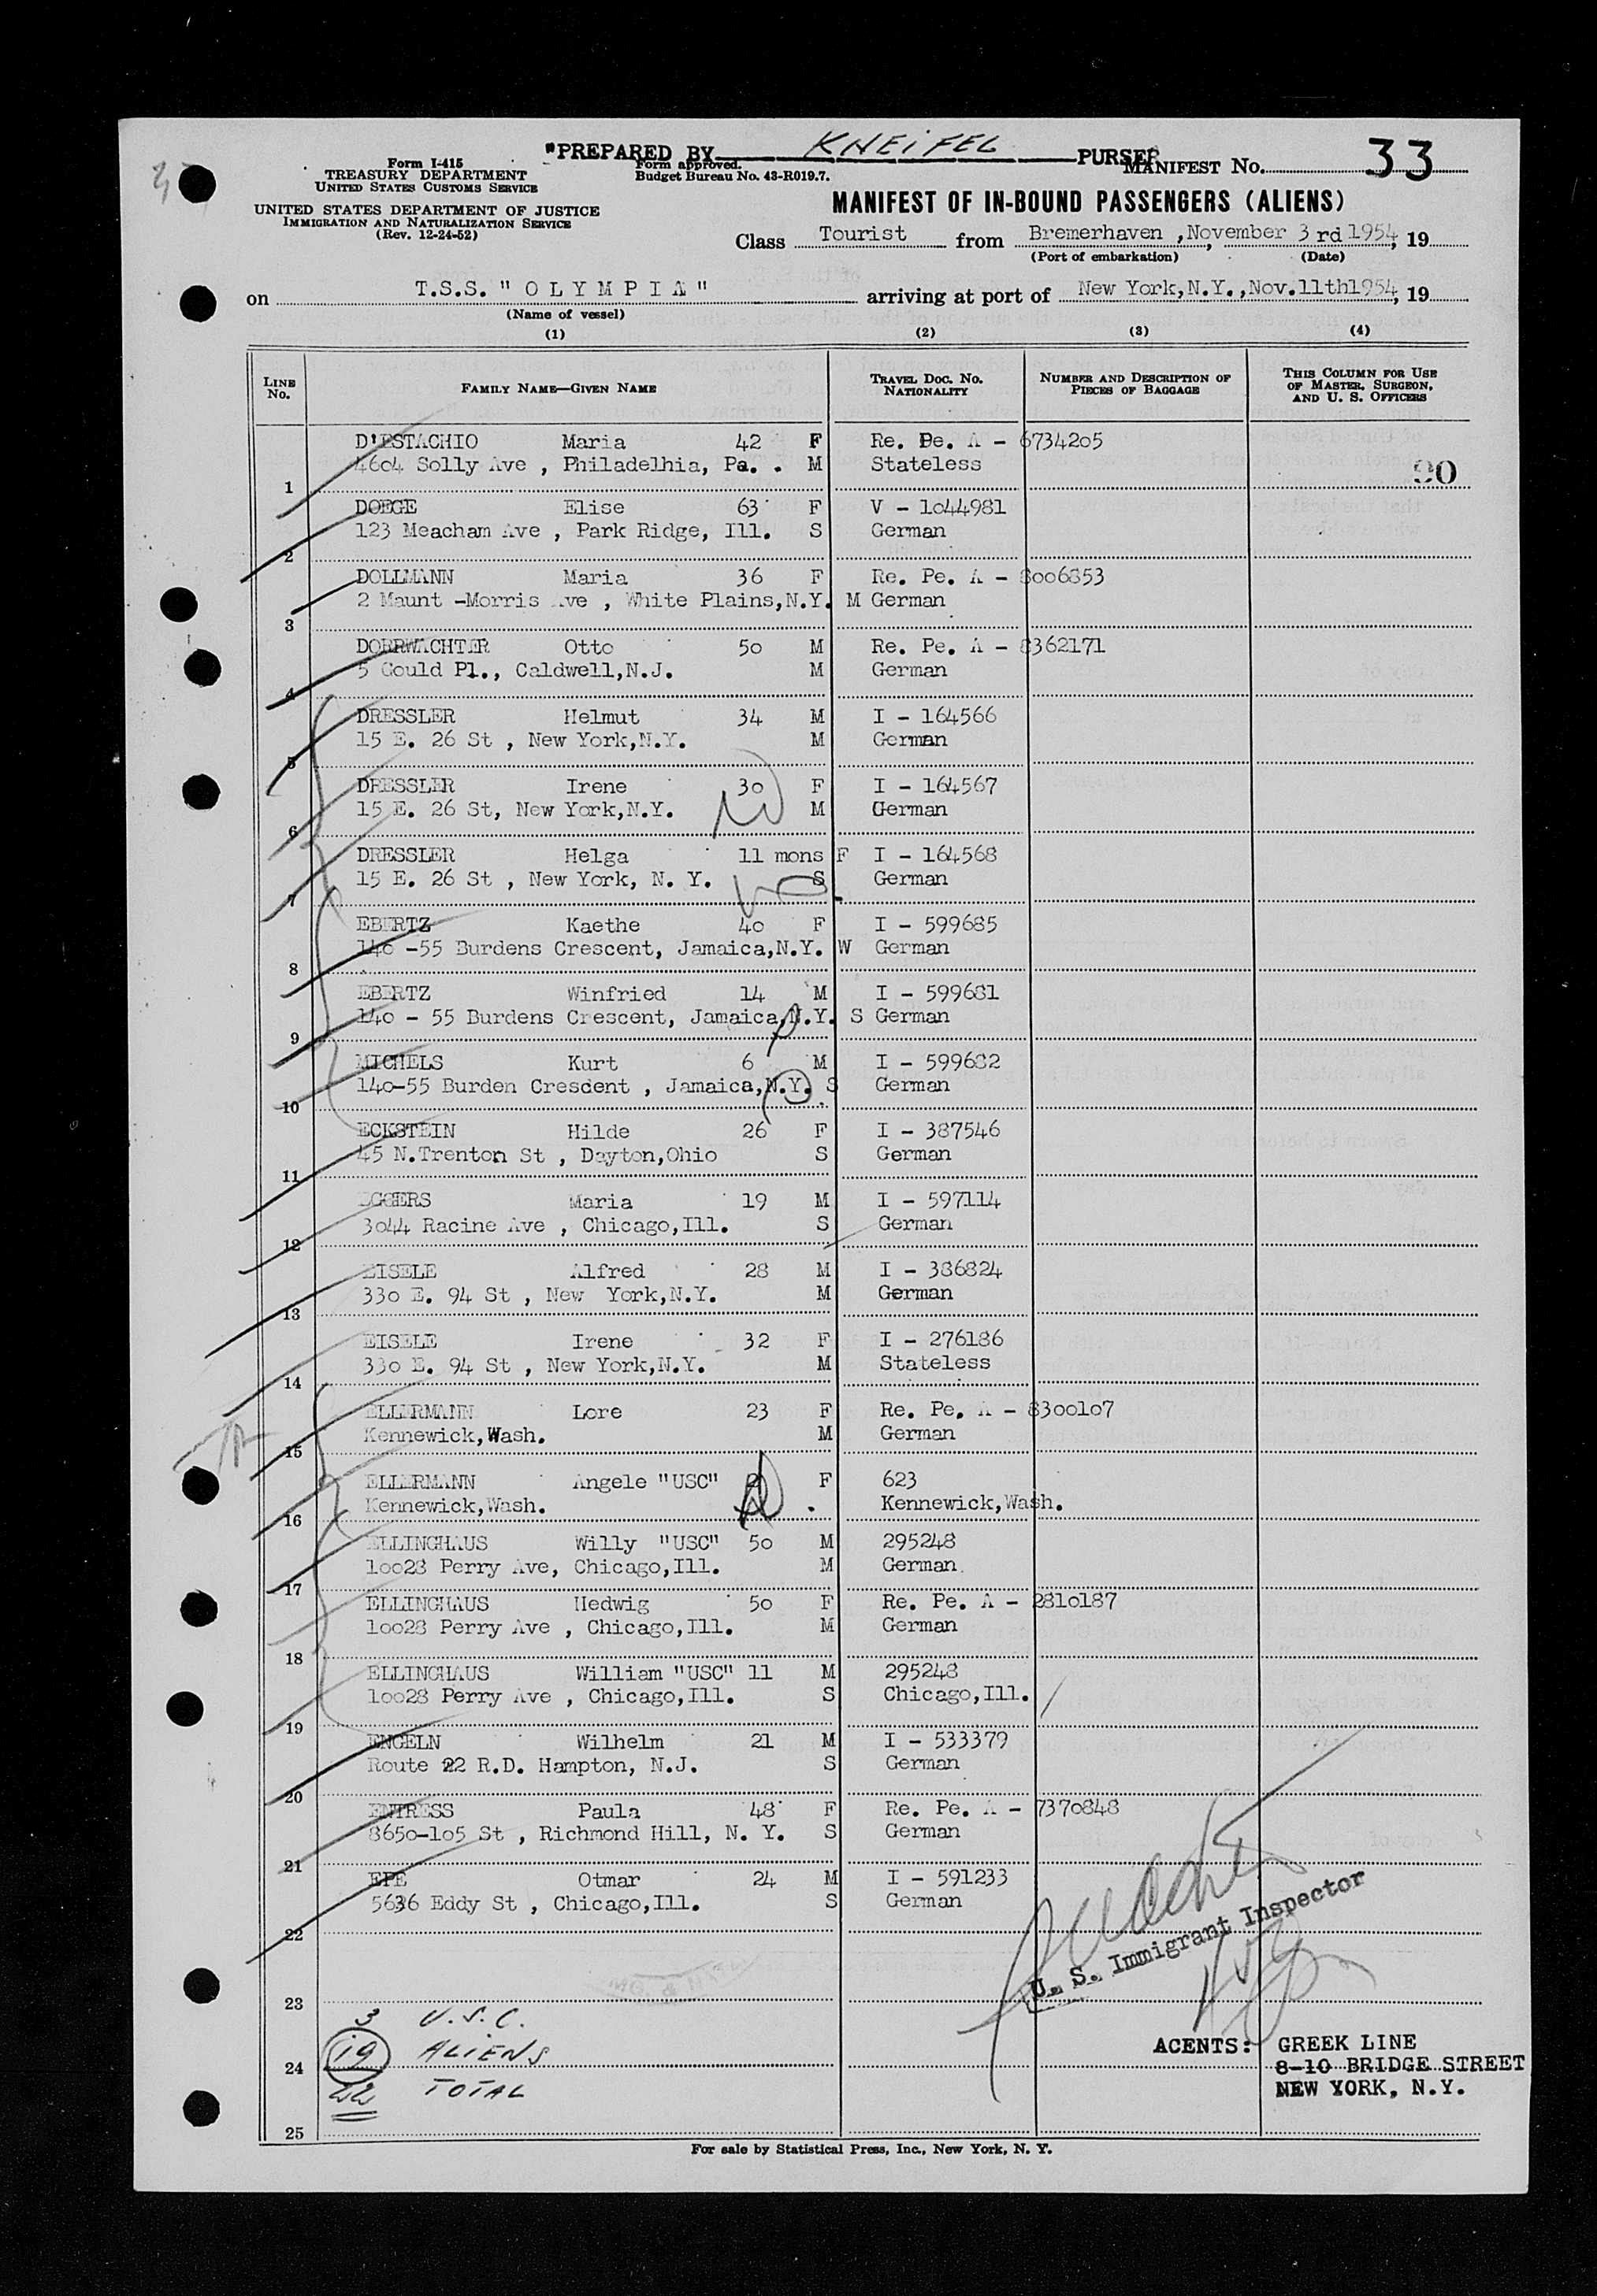 "PREPARED BY KNEIFEL PURSER
Form I-415
TREASURY DEPARTMENT
UNITED STATES CUSTOMS SERVICE
Form approved.
Budget Bureau No. 43-R019.7.
MANIFEST No. 33
UNITED STATES DEPARTMENT OF JUSTICE
IMMIGRATION AND NATURALIZATION SERVICE
(Rev. 12-24-52)
MANIFEST OF IN-BOUND PASSENGERS (ALIENS)
Class Tourist from Bremerhaven , November 3 rd 1954, 19
(Port of embarkation) (Date)
on T.S.S. " O L Y M P I A " arriving at port of New York,N.Y.,Nov.11th1954, 19
(Name of vessel)
(1) (2) (3) (4)
LINE No. FAMILY NAME—GIVEN NAME TRAVEL DOC. NO. NATIONALITY NUMBER AND DESCRIPTION OF PIECES OF BAGGAGE THIS COLUMN FOR USE OF MASTER, SURGEON, AND U. S. OFFICERS
D'ESTACHIO Maria 42 F Re. Pe. A - 6734205
4604 Solly Ave , Philadelhia, Pa. . M Stateless 90
1
DOEGE Elise 63 F V - 1044981
123 Meacham Ave , Park Ridge, Ill. S German
2
DOLLMANN Maria 36 F Re. Pe. A - 8006853
2 Maunt -Morris Ave , White Plains,N.Y. M German
3
DORRWACHTER Otto 50 M Re. Pe. A - 8362171
5 Gould Pl., Caldwell,N.J. M German
4
DRESSLER Helmut 34 M I - 164566
15 E. 26 St , New York,N.Y. M German
5
DRESSLER Irene 30 F I - 164567
15 E. 26 St, New York,N.Y. M German
6
DRESSLER Helga 11 mons F I - 164568
15 E. 26 St , New York, N. Y. S German
7
EBERTZ Kaethe 40 F I - 599685
140 -55 Burdens Crescent, Jamaica,N.Y. W German
8
EBERTZ Winfried 14 M I - 599681
140 - 55 Burdens Crescent, Jamaica,N.Y. S German
9
MICHELS Kurt 6 M I - 599682
140-55 Burden Crescent , Jamaica,N.Y. S German
10
ECKSTEIN Hilde 26 F I - 387546
45 N.Trenton St , Dayton,Ohio S German
11
EGGERS Maria 19 M I - 597114
3044 Racine Ave , Chicago,Ill. S German
12
EISELE Alfred 28 M I - 386824
330 E. 94 St , New York,N.Y. M German
13
EISELE Irene 32 F I - 276186
330 E. 94 St , New York,N.Y. M Stateless
14
ELLERMANN Lore 23 F Re. Pe. A - 8300107
Kennewick,Wash. M German
15
ELLERMANN Angele "USC" F 623
Kennewick,Wash. . Kennewick,Wash.
16
ELLINGHAUS Willy "USC" 50 M 295248
10028 Perry Ave, Chicago,Ill. M German
17
ELLINGHAUS Hedwig 50 F Re. Pe. A - 2810187
10028 Perry Ave , Chicago,Ill. M German
18
ELLINGHAUS William "USC" 11 M 295248
10028 Perry Ave , Chicago,Ill. S Chicago,Ill.
19
ENGELN Wilhelm 21 M I - 533379
Route 22 R.D. Hampton, N.J. S German
20
ENTRESS Paula 48 F Re. Pe. A - 7370848
8650-105 St , Richmond Hill, N. Y. S German
21
EPE Otmar 24 M I - 591233
5636 Eddy St , Chicago,Ill. S German
22
U. S. Immigrant Inspector
23
3 U.S.C.
19 ALIENS
24
22 TOTAL
AGENTS: GREEK LINE
8-10 BRIDGE STREET
NEW YORK, N.Y.
25
For sale by Statistical Press, Inc., New York, N. Y.